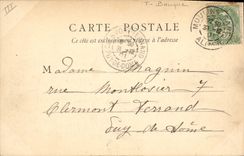 III
T. Banque
CARTE POSTALE
Ce côté est exclusivement réservé à l'adresse
MOU
ALLIER
Madame Magnin
rue Montlosier 7
Clermont Ferrand
Puy de Dôme